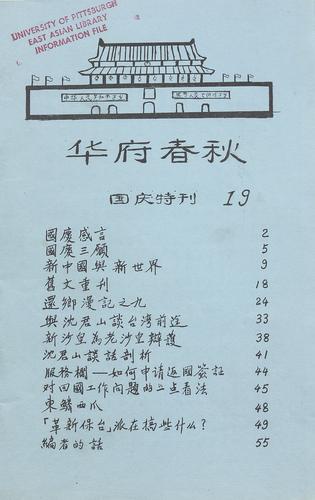 UNIVERSITY OF PITTSBURGH
EAST ASIAN LIBRARY
INFORMATION FILE
华府春秋
国庆特刊 19
國慶感言 2
國慶三願 5
新中國與新世界 9
舊文重刊 18
還鄉漫記之九 24
與沈君山談台湾前途 33
新沙皇為老沙皇辯護 38
沈君山談話剖析 41
服務欄——如何申請返國簽証 44
对回國工作问題的二点看法 45
東鱗西爪 48
「革新保台」派在搞些什么? 49
編者的話 55